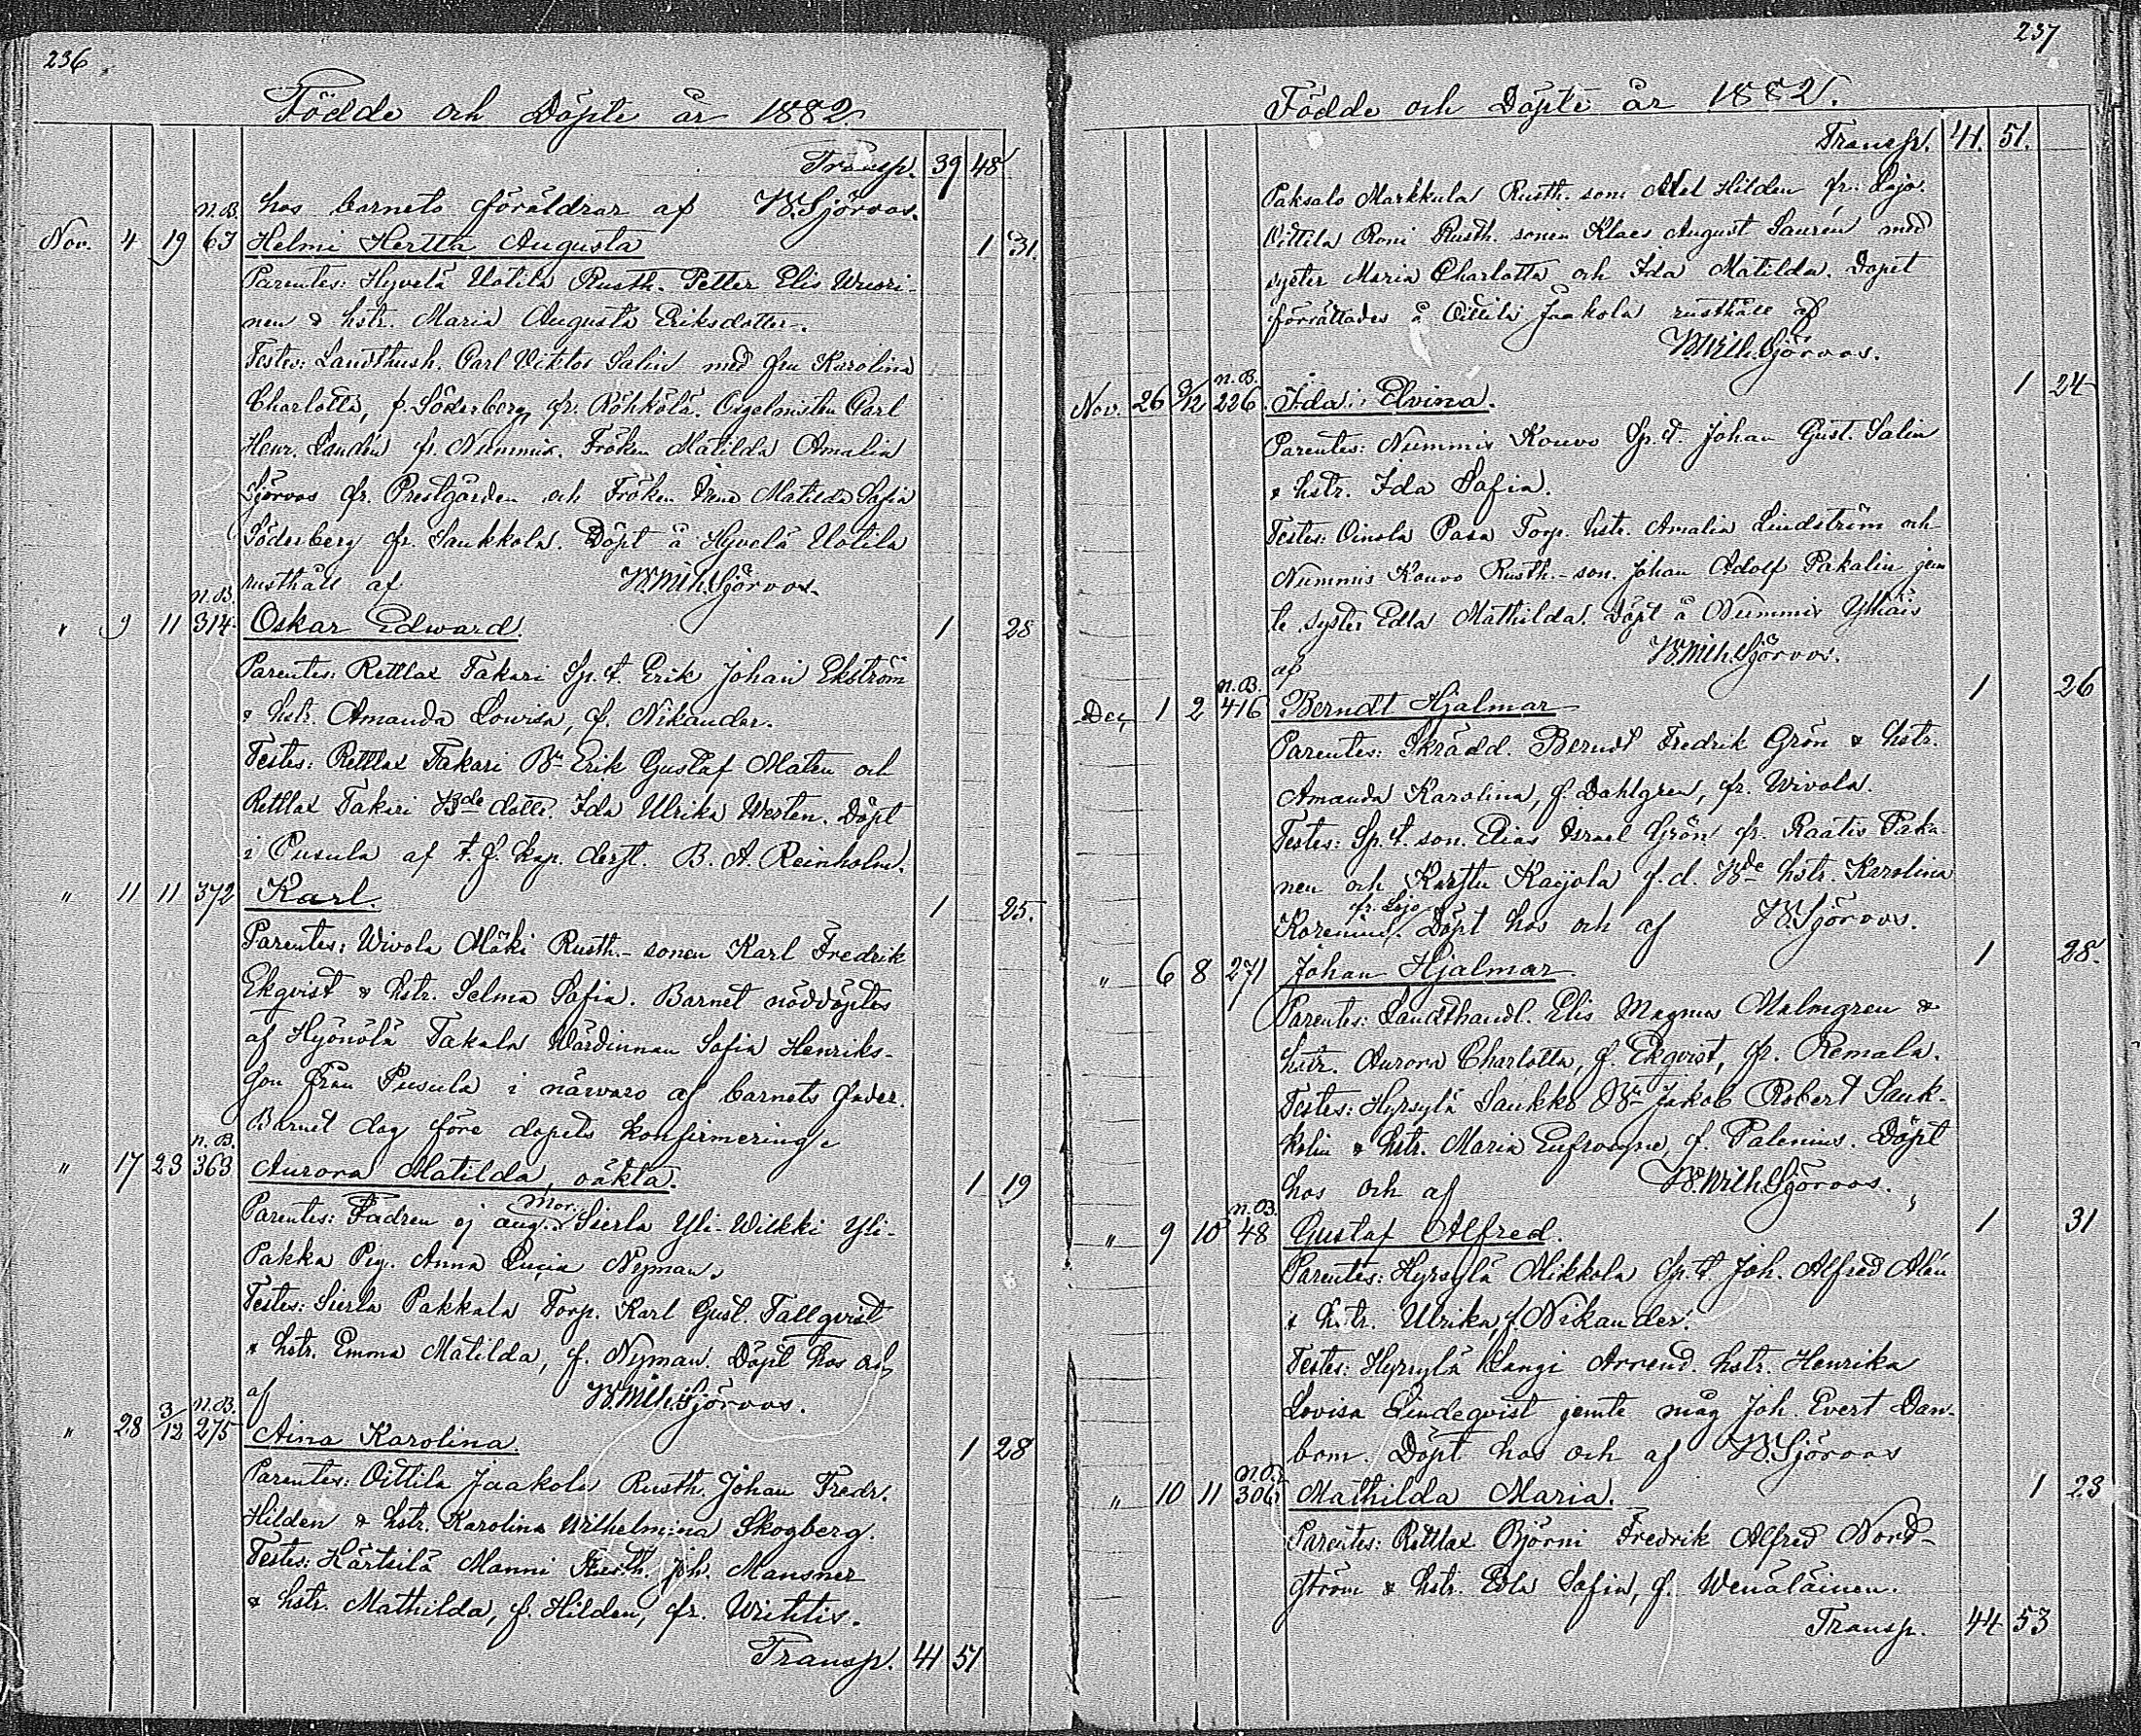 236
Födde och Döpte år 1882
Transp. 39 48
hos barnets föräldrar af W. Sjöroos.
Nov. 4 19 N.B. 63 Helmi Hertta Augusta 1 31.
Parentes: Hyvelä Uotila Rusth. Petter Elis Wuori-
nen & hstr. Maria Augusta Eriksdotter.
Testes: Landthush. Carl Viktor Salin med fru Karolina
Charlotta, f. Söderberg, fr. Röhkölä. Orgelnisten Carl
Henr. Landén fr. Nummis. Fröken Matilda Amalia
Sjöroos fr. Prestgården och Fröken Irene Matilda Sofia
Söderberg fr. Saukkola. Döpt å Hyvelä Uotila
rusthåll af W. Wilh. Sjöroos.
" 9 11 N.B. 314 Oskar Edward. 1 28
Parentes: Rettlax Takari Sp. t. Erik Johan Ekström
& hstr. Amanda Lowisa, f. Nikander.
Testes: Rettlax Takari Bn Erik Gustaf Maten och
Rettlax Takari Bde dottr. Ida Ulrika Westen. Döpt
i Pusula af t. f. kap. derst. B. A. Reinholm.
" 11 11 372 Karl. 1 25.
Parentes: Wivola Mäki Rusth.-sonen Karl Fredrik
Ekqvist & hstr. Selma Sofia. Barnet nöddöptes
af Hyönölä Takala Wärdinnan Sofia Henriks-
son från Pusula i närvaro af barnets fader.
Barnet dog före dopets konfirmering.
" 17 23 N.B. 363 Aurora Matilda, oäkta. 1 19
Parentes: Fadren ej ang. Mor: Sierla Yli-Wilkki Yli-
Pakka Pig. Anna Lucia Nyman.
Testes: Sierla Pakkala Torp. Karl Gust. Tallqvist
& hstr. Emma Matilda, f. Nyman. Döpt hos och
af W. Wilh. Sjöroos.
" 28 3/12 N.B. 275 Aina Karolina 1 28
Parentes: Oittila Jaakola Rusth. Johan Fredr.
Hilden & hstr. Karolina Wilhelmina Skogberg.
Testes: Härtsilä Manni Rusth. Joh. Mansner
& hstr. Mathilda, f. Hilden, fr. Wichtis.
Transp. 41 51
237
Födde och Döpte år 1882.
Transp. 41. 51.
Paksalo Markkula Rusth. son Axel Hilden fr. Lojo.
Oittila Roni Rusth. sonen Klaes August Saurén med
syster Maria Charlotta och Ida Matilda. Dopet
förrättades å Oittila Jaakola rusthåll af
W. Wilh. Sjöroos.
Nov. 26 3/12 N.B. 226. Ida Elvina. 1 24
Parentes: Nummis Kouvo Sp. t. Johan Gust. Salin
& hstr. Ida Sofia.
Testes: Oinola Pasa Torp. hstr. Amalia Lindström och
Nummis Kouvo Rusth.-son. Johan Adolf Pakalin jem
te syster Edla Mathilda. Döpt å Nummis
af W. Wilh. Sjöroos.
Dec. 1 2 N.B. 416 Berndt Hjalmar 1 26
Parentes: Skrädd. Berndt Fredrik Grön & hstr.
Amanda Karolina, f. Dahlgren, fr. Wivola.
Testes: Sp. t. son. Elias Israel Grön fr. Raatis Paka-
nen och Karstu Kaijola f. d. Bde hstr. Karolina
Korenius, fr. Lojo. Döpt hos och af W. Sjöroos.
" 6 8 271 Johan Hjalmar 1 28.
Parentes: Landthandl. Elis Magnus Malmgren &
hstr. Aurora Charlotta, f. Ekqvist, fr. Remala.
Testes: Hyrsylä Saukko Bn Jakob Robert Sauk-
kolin & hstr. Maria Eufrosyne, f. Palenius. Döpt
hos och af W. Wilh. Sjöroos.
" 9 10 N.B. 48 Gustaf Alfred. 1 31
Parentes: Hyrsylä Mikkola Sp. t. Joh. Alfred Alén
& hstr. Ulrika, f. Nikander.
Testes: Hyrsylä Langi Arrend. hstr. Henrika
Lovisa Lindeqvist jemte måg Joh. Evert Dan-
bom. Döpt hos och af W. Sjöroos
" 10 11 N.B. 306 Mathilda Maria. 1 23
Parentes: Rettlax Björni Fredrik Alfred Nord-
ström & hstr. Edla Sofia, f. Wenäläinen.
Transp. 44 53